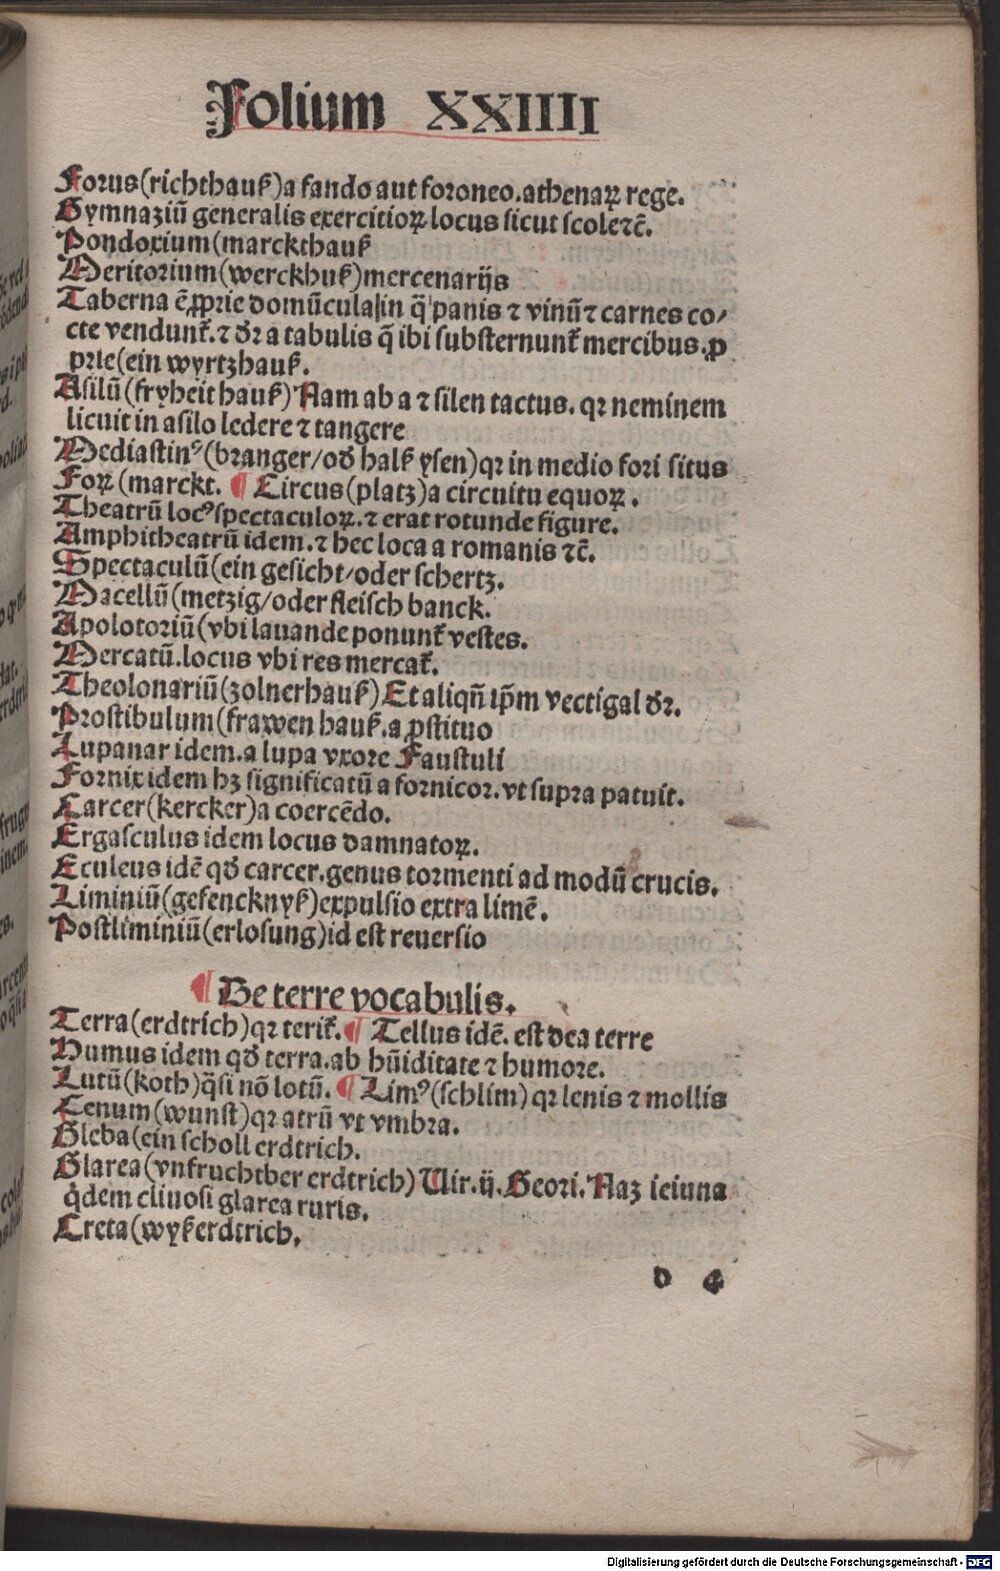 Folium XXIIII
Forus(richthauſz)a fando aut foroneo.athenaꝝ rege.
Gymnaziū generalis exercitioꝝ locus ſicut ſcole ⁊c̄.
Pondoxium(marckthauſz
Meritorium(werckhuſz)mercenarijs
Taberna ē ꝓprie domūcula|in q̄ panis ⁊ vinū ⁊ carnes co⸗
cte vendunt̄. ⁊ dr̄ a tabulis q̄ ibi ſubſternunt̄ mercibus.ꝓ
prie(ein wyrtzhauſz.
Aſilū(fryheit hauſz)Nam ab a ⁊ ſilen tactus. qꝛ neminem
licuit in aſilo ledere ⁊ tangere
Mediaſtinꝰ(branger/od̄ halſz yſen)qꝛ in medio fori ſitus
Foꝝ(marckt. ¶ Circus(platz)a circuitu equoꝝ.
Theatrū locꝰ ſpectaculoꝝ.⁊ erat rotunde figure.
Amphitheatrū idem.⁊ hec loca a romanis ⁊c̄.
Spectaculū(ein geſicht/oder ſchertz.
Macellū(metzig/oder fleiſch banck.
Apolotoriū(vbi lauande ponunt̄ veſtes.
Mercatū.locus vbi res mercat̄.
Theolonariū(zolnerhauſz)Et aliqn̄ ip̄m vectigal dr̄.
Proſtibulum(frawen hauſz.a ꝓſtituo
Lupanar idem.a lupa vxore Fauſtuli
Fornix idem hꝫ ſignificatū a fornicor.vt ſupra patuit.
Carcer(kercker)a coercēdo.
Ergaſculus idem locus damnatoꝝ.
Eculeus idē qd̄ carcer.genus tormenti ad modū crucis.
Liminiū(gefencknyſz)expulſio extra limē.
Poſtliminiū(erloſung)id eſt reuerſio
¶ De terre vocabulis.
Terra(erdtrich)qꝛ terit̄.¶ Tellus idē. eſt dea terre
Humus idem qd̄ terra.ab hūiditate ⁊ humore.
Lutū(koth)q̄ſi nō lotū. ¶ Limꝰ(ſchlim)qꝛ lenis ⁊ mollis
Cenum(wunſt)qꝛ atrū vt vmbra.
Gleba(ein ſcholl erdtrich.
Glarea(vnfruchtber erdtrich)Uir.ij.Geori.Naꝫ ieiuna
q̇dem cliuoſi glarea ruris.
Creta(wyſz erdtrich.
d 4
Digitalisierung gefördert durch die Deutsche Forschungsgemeinschaft - DFG